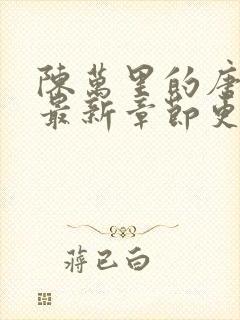 陳萬里的唐
最新章節更
蔣已白